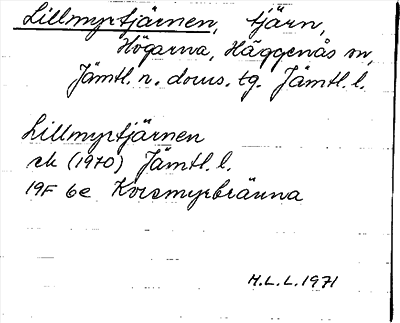 Lillmyrtjärnen, tjärn,
Högarna, Häggenås sn,
Jämtl. n. doms. tg. Jämtl. l.
Lillmyrtjärnen
ek (1970) Jämtl. l.
19F 6e Korsmyrbränna
H.L.L. 1971